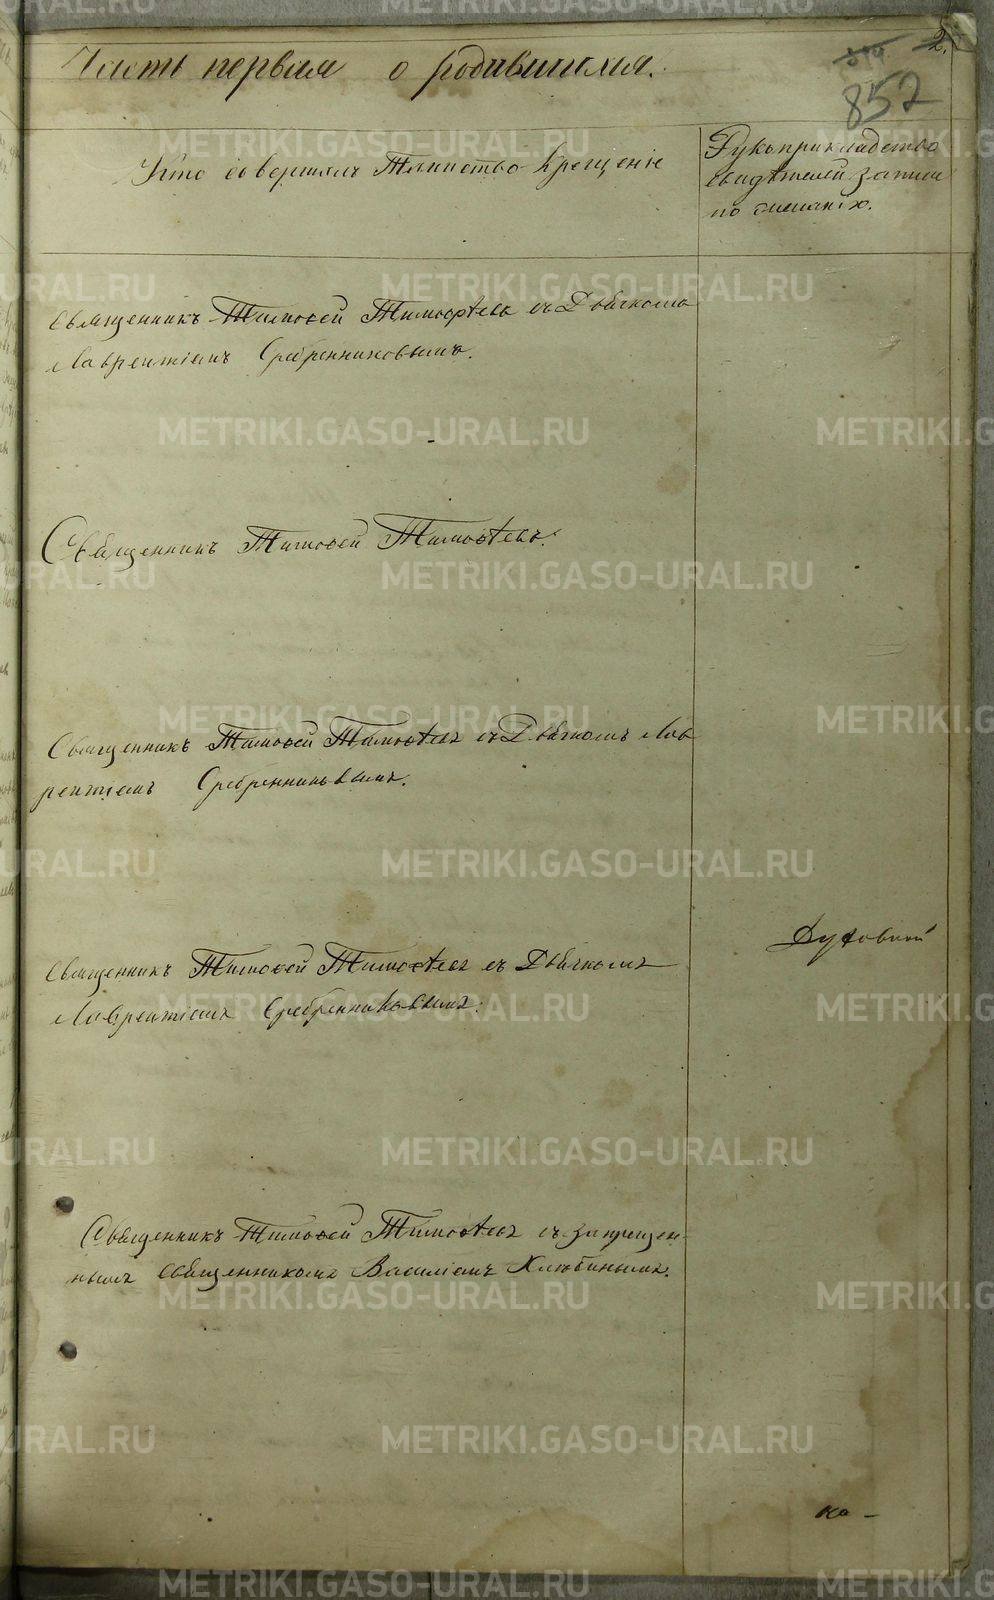 2.
394
852
Часть первая о родившихся.
Кто совершалъ Таинство Крещенія
Рукоприкладство
свидѣтелей записи
по желанію.
Священникъ Тимоѳей Тимофѣевъ съ Дьячкомъ
Лаврентіемъ Сребренниковымъ.
Священникъ Тимоѳей Тимоѳѣевъ.
Священникъ Тимоѳей Тимоѳѣевъ съ Дьячкомъ Лав
рентіемъ Сребренниковымъ.
Духовной
Священникъ Тимоѳей Тимоѳѣевъ съ Дьячкомъ
Лаврентіемъ Сребренниковымъ.
Священникъ Тимоѳей Тимоѳѣевъ съ запрещен-
нымъ священникомъ Василіемъ Хлюбинымъ.
ко -
METRIKI.GASO-URAL.RU